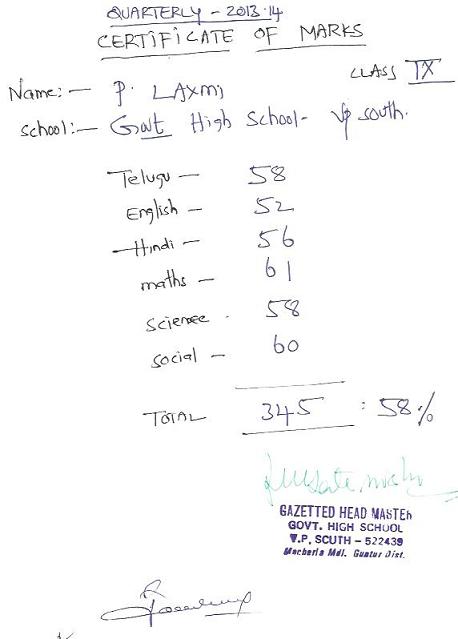 QUARTERLY - 2013-14
CERTIFICATE OF MARKS
CLASS IX
Name:- P. LAXMI
School:- Govt High School- Vp south.
Telugu - 58
English - 52
Hindi - 56
maths - 61
science - 58
social - 60
TOTAL 345 : 58%
GAZETTED HEAD MASTER
GOVT. HIGH SCHOOL
V.P. SCUTH - 522439
Macherla Mdl. Guntur Dist.